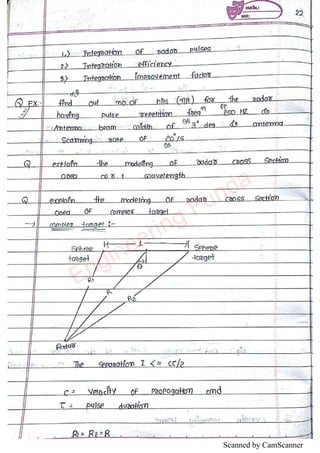 22
1.) Integration of radar pulses
2.) Integration efficiency
3.) Integration improvement factor
Q. EX: find out no. of hits (nB) for the radar
having pulse repetition freqn HZ
Antenna beam width of 3° deg antenna
Scanning rate of /s
Q. explain the modeling of radar cross section
area w.r.t wavelength
Q. explain the modeling of radar cross section
area of complex target
complex target :-
Sphere target
I
Sphere target
θ
R1
R
R2
Radar
The separation I <= cτ/2
c = velocity of propogation and
τ = pulse duration
R1 = R2 = R
Engineering Funda
Scanned by CamScanner